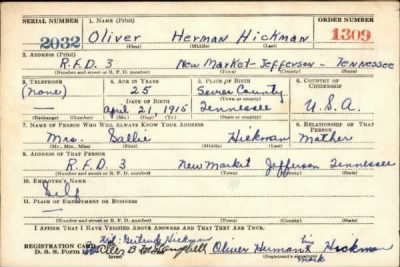 SERIAL NUMBER 1. NAME (Print) ORDER NUMBER
2032 Oliver Herman Hickman 1309
(First) (Middle) (Last)
2. ADDRESS (Print)
R.F.D. 3 New Market - Jefferson - Tennessee
(Number and street or R. F. D. number) (Town) (County) (State)
3. TELEPHONE 4. AGE IN YEARS 5. PLACE OF BIRTH 6. COUNTRY OF CITIZENSHIP
(none) 25 Sevier County
DATE OF BIRTH (Town or county)
— April 21, 1915 Tennessee U.S.A.
(Exchange) (Number) (Mo.) (Day) (Yr.) (State or country)
7. NAME OF PERSON WHO WILL ALWAYS KNOW YOUR ADDRESS 8. RELATIONSHIP OF THAT PERSON
Mrs. Sallie Hickman Mother
(Mr., Mrs., Miss) (First) (Middle) (Last)
9. ADDRESS OF THAT PERSON
R.F.D. 3 New Market Jefferson Tennessee
(Number and street or R. F. D. number) (Town) (County) (State)
10. EMPLOYER'S NAME
Self
11. PLACE OF EMPLOYMENT OR BUSINESS
—
(Number and street or R. F. D. number) (Town) (County) (State)
I AFFIRM THAT I HAVE VERIFIED ABOVE ANSWERS AND THAT THEY ARE TRUE.
Gertrude Hickman
REGISTRATION CARD Campbell Oliver Herman his Hickman
D. S. S. Form mark